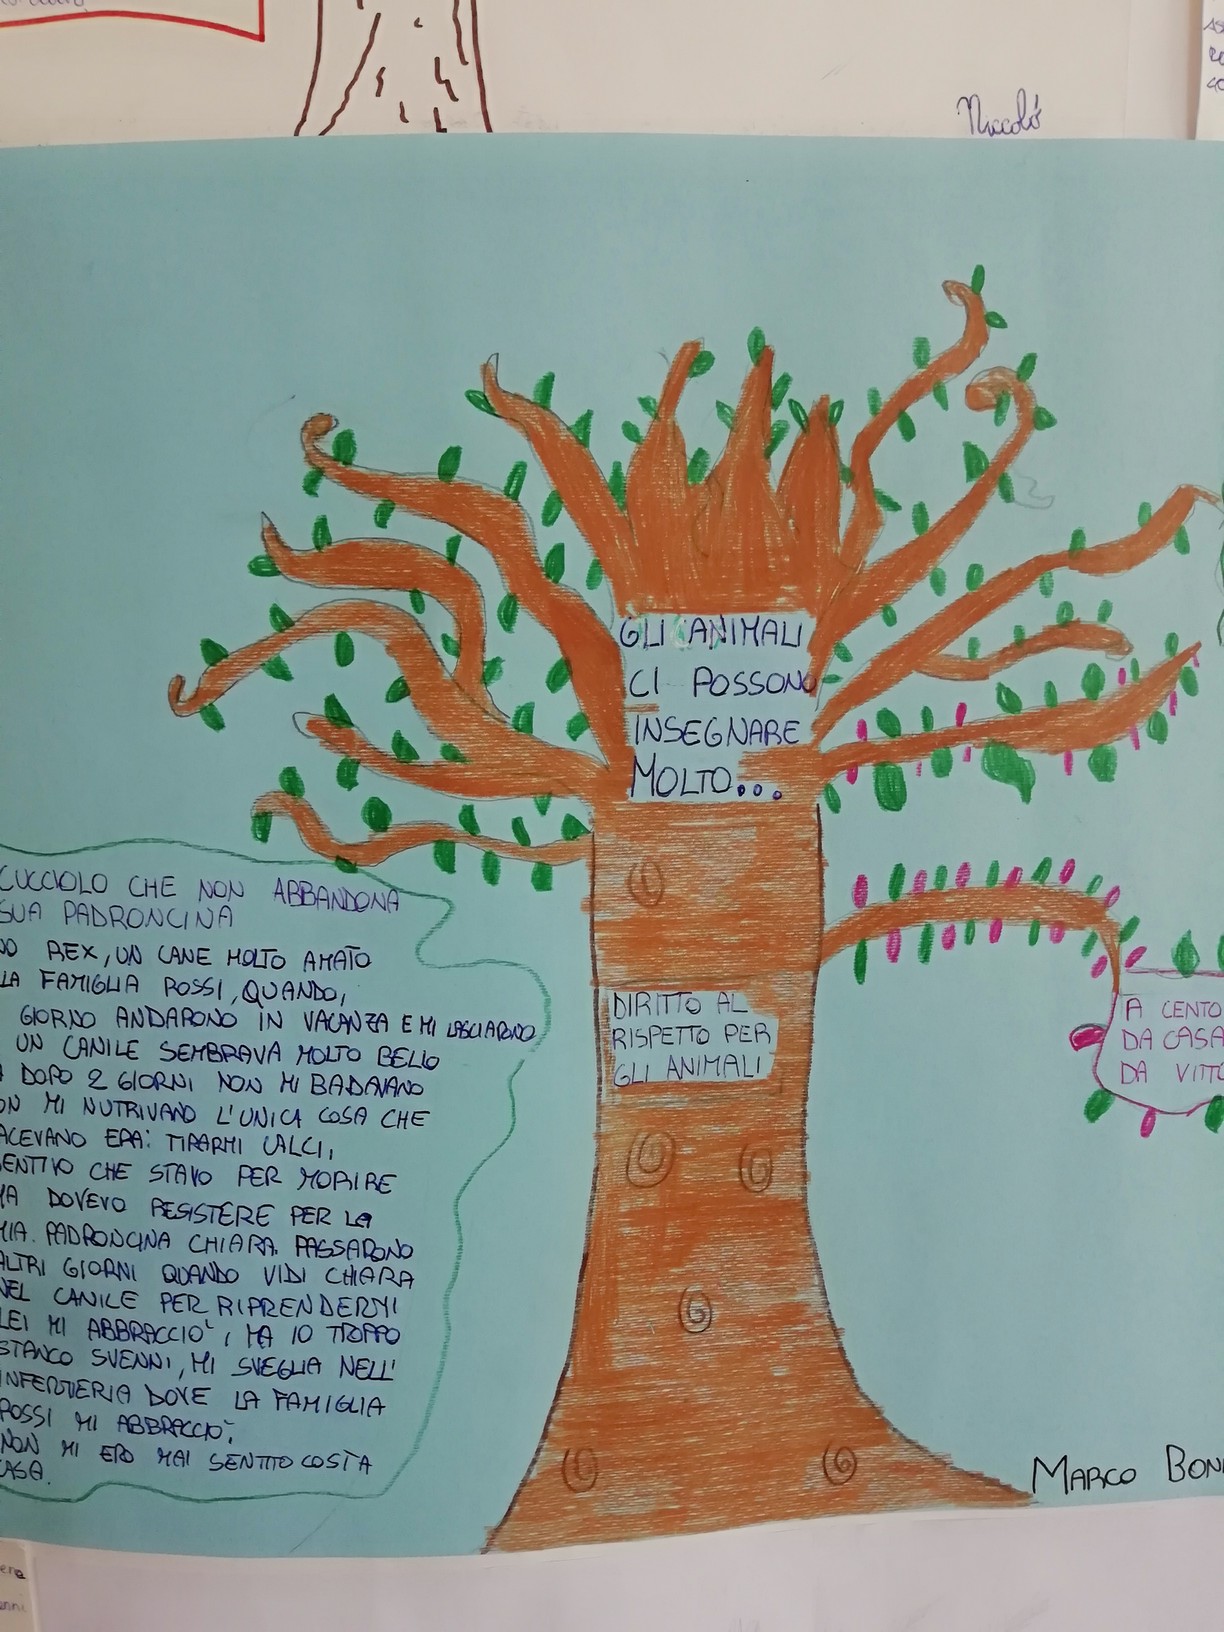 Niccoló
GLI ANIMALI
CI POSSONO
INSEGNARE
MOLTO...
DIRITTO AL
RISPETTO PER
GLI ANIMALI
CUCCIOLO CHE NON ABBANDONA
SUA PADRONCINA
NO REX, UN CANE MOLTO AMATO
LLA FAMIGLIA ROSSI, QUANDO,
GIORNO ANDARONO IN VACANZA E MI LASCIARONO
UN CANILE SEMBRAVA MOLTO BELLO
A DOPO 2 GIORNI NON MI BADAVANO
ON MI NUTRIVANO L'UNICA COSA CHE
ACEVANO ERA: TIRARMI CALCI,
SENTIVO CHE STAVO PER MORIRE
MA DOVEVO RESISTERE PER LA
MIA PADRONCINA CHIARA. PASSARONO
ALTRI GIORNI QUANDO VIDI CHIARA
NEL CANILE PER RIPRENDERMI
LEI MI ABBRACCIO', MA IO TROPPO
STANCO SVENNI, MI SVEGLIA NELL'
INFERMERIA DOVE LA FAMIGLIA
ROSSI MI ABBRACCIÒ;
NON MI ERO MAI SENTITO COSÌ A
CASA.
A CENTO
DA CASA
DA VITTO
MARCO BON